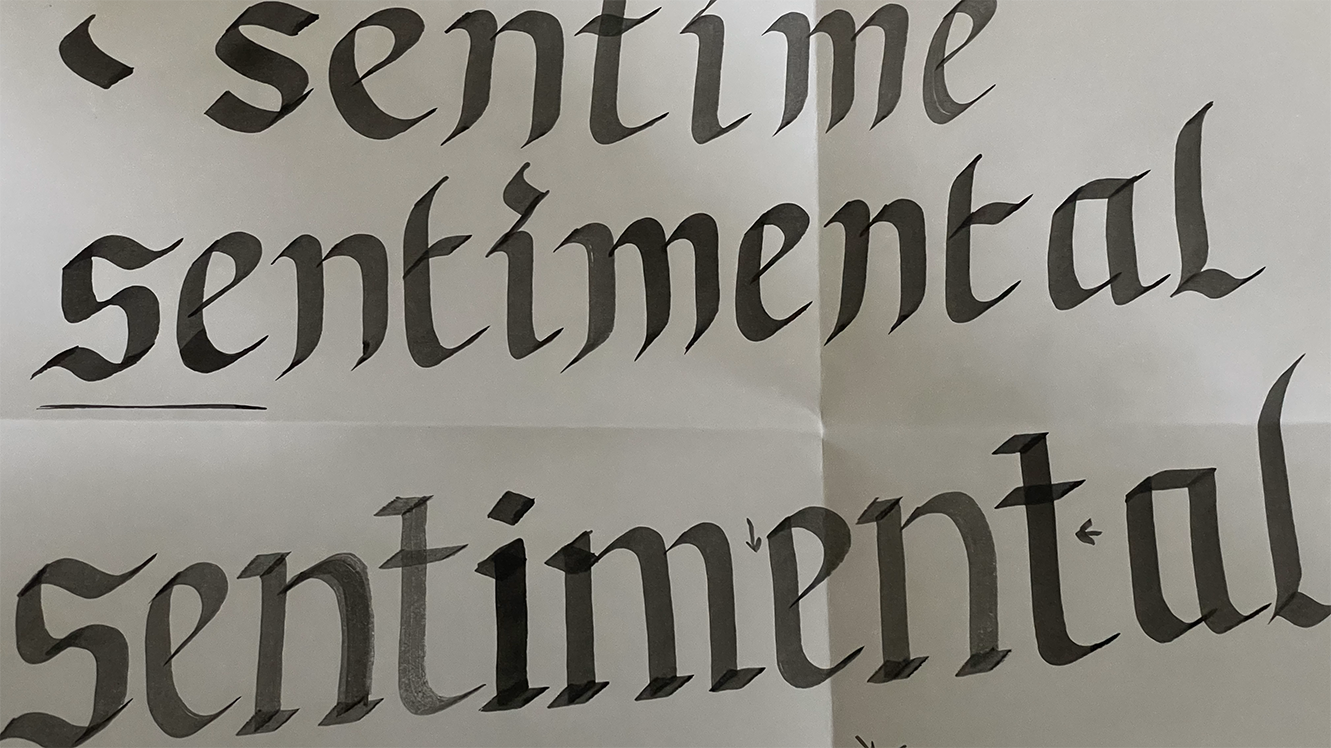 sentime
sentimental
sentimental